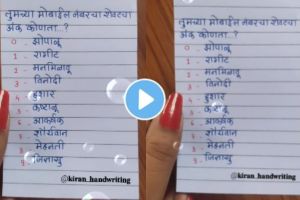 तुमच्या मोबाईल नंबरचा शेवटचा
अंक कोणता..?
0 - झोपाळू
1 - रागीट
2 - मनमिळावू
3 - विनोदी
4 - हुशार
5 - कष्टाळू
6 - आकर्षक
7 - शौर्यवान
8 - मेहनती
9 - जिज्ञासू
@kiran_handwriting
तुमच्या मोबाईल नंबरचा शेवटचा
अंक कोणता..?
0 - झोपाळू
1 - रागीट
2 - मनमिळावू
3 - विनोदी
4 - हुशार
5 - कष्टाळू
6 - आकर्षक
7 - शौर्यवान
8 - मेहनती
9 - जिज्ञासू
@kiran_handwriting